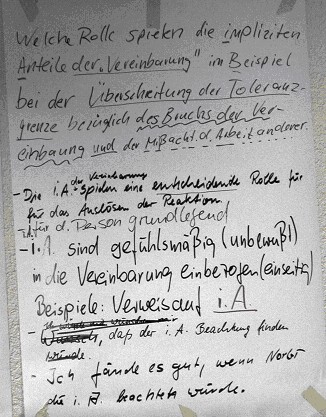 Welche Rolle spielen die impliziten
Anteile der „Vereinbarung" im Beispiel
bei der Überschreitung der Toleranz-
grenze bezüglich des Bruchs der Ver-
einbaung und der Mißacht. d. Arbeit anderer.
- Die i.A. der Vereinbarung spielen eine entscheidende Rolle für
für das Auslösen der Reaktion
für d. Person grundlegend
- i.A. sind gefühlsmäßig (unbewußt)
in die Vereinbarung einbezogen (einseitig)
Beispiele: Verweis auf i.A
- Wunsch, daß der i.A. Beachtung finden
würde.
- Ich fände es gut, wenn
die i.A. beachten würde.